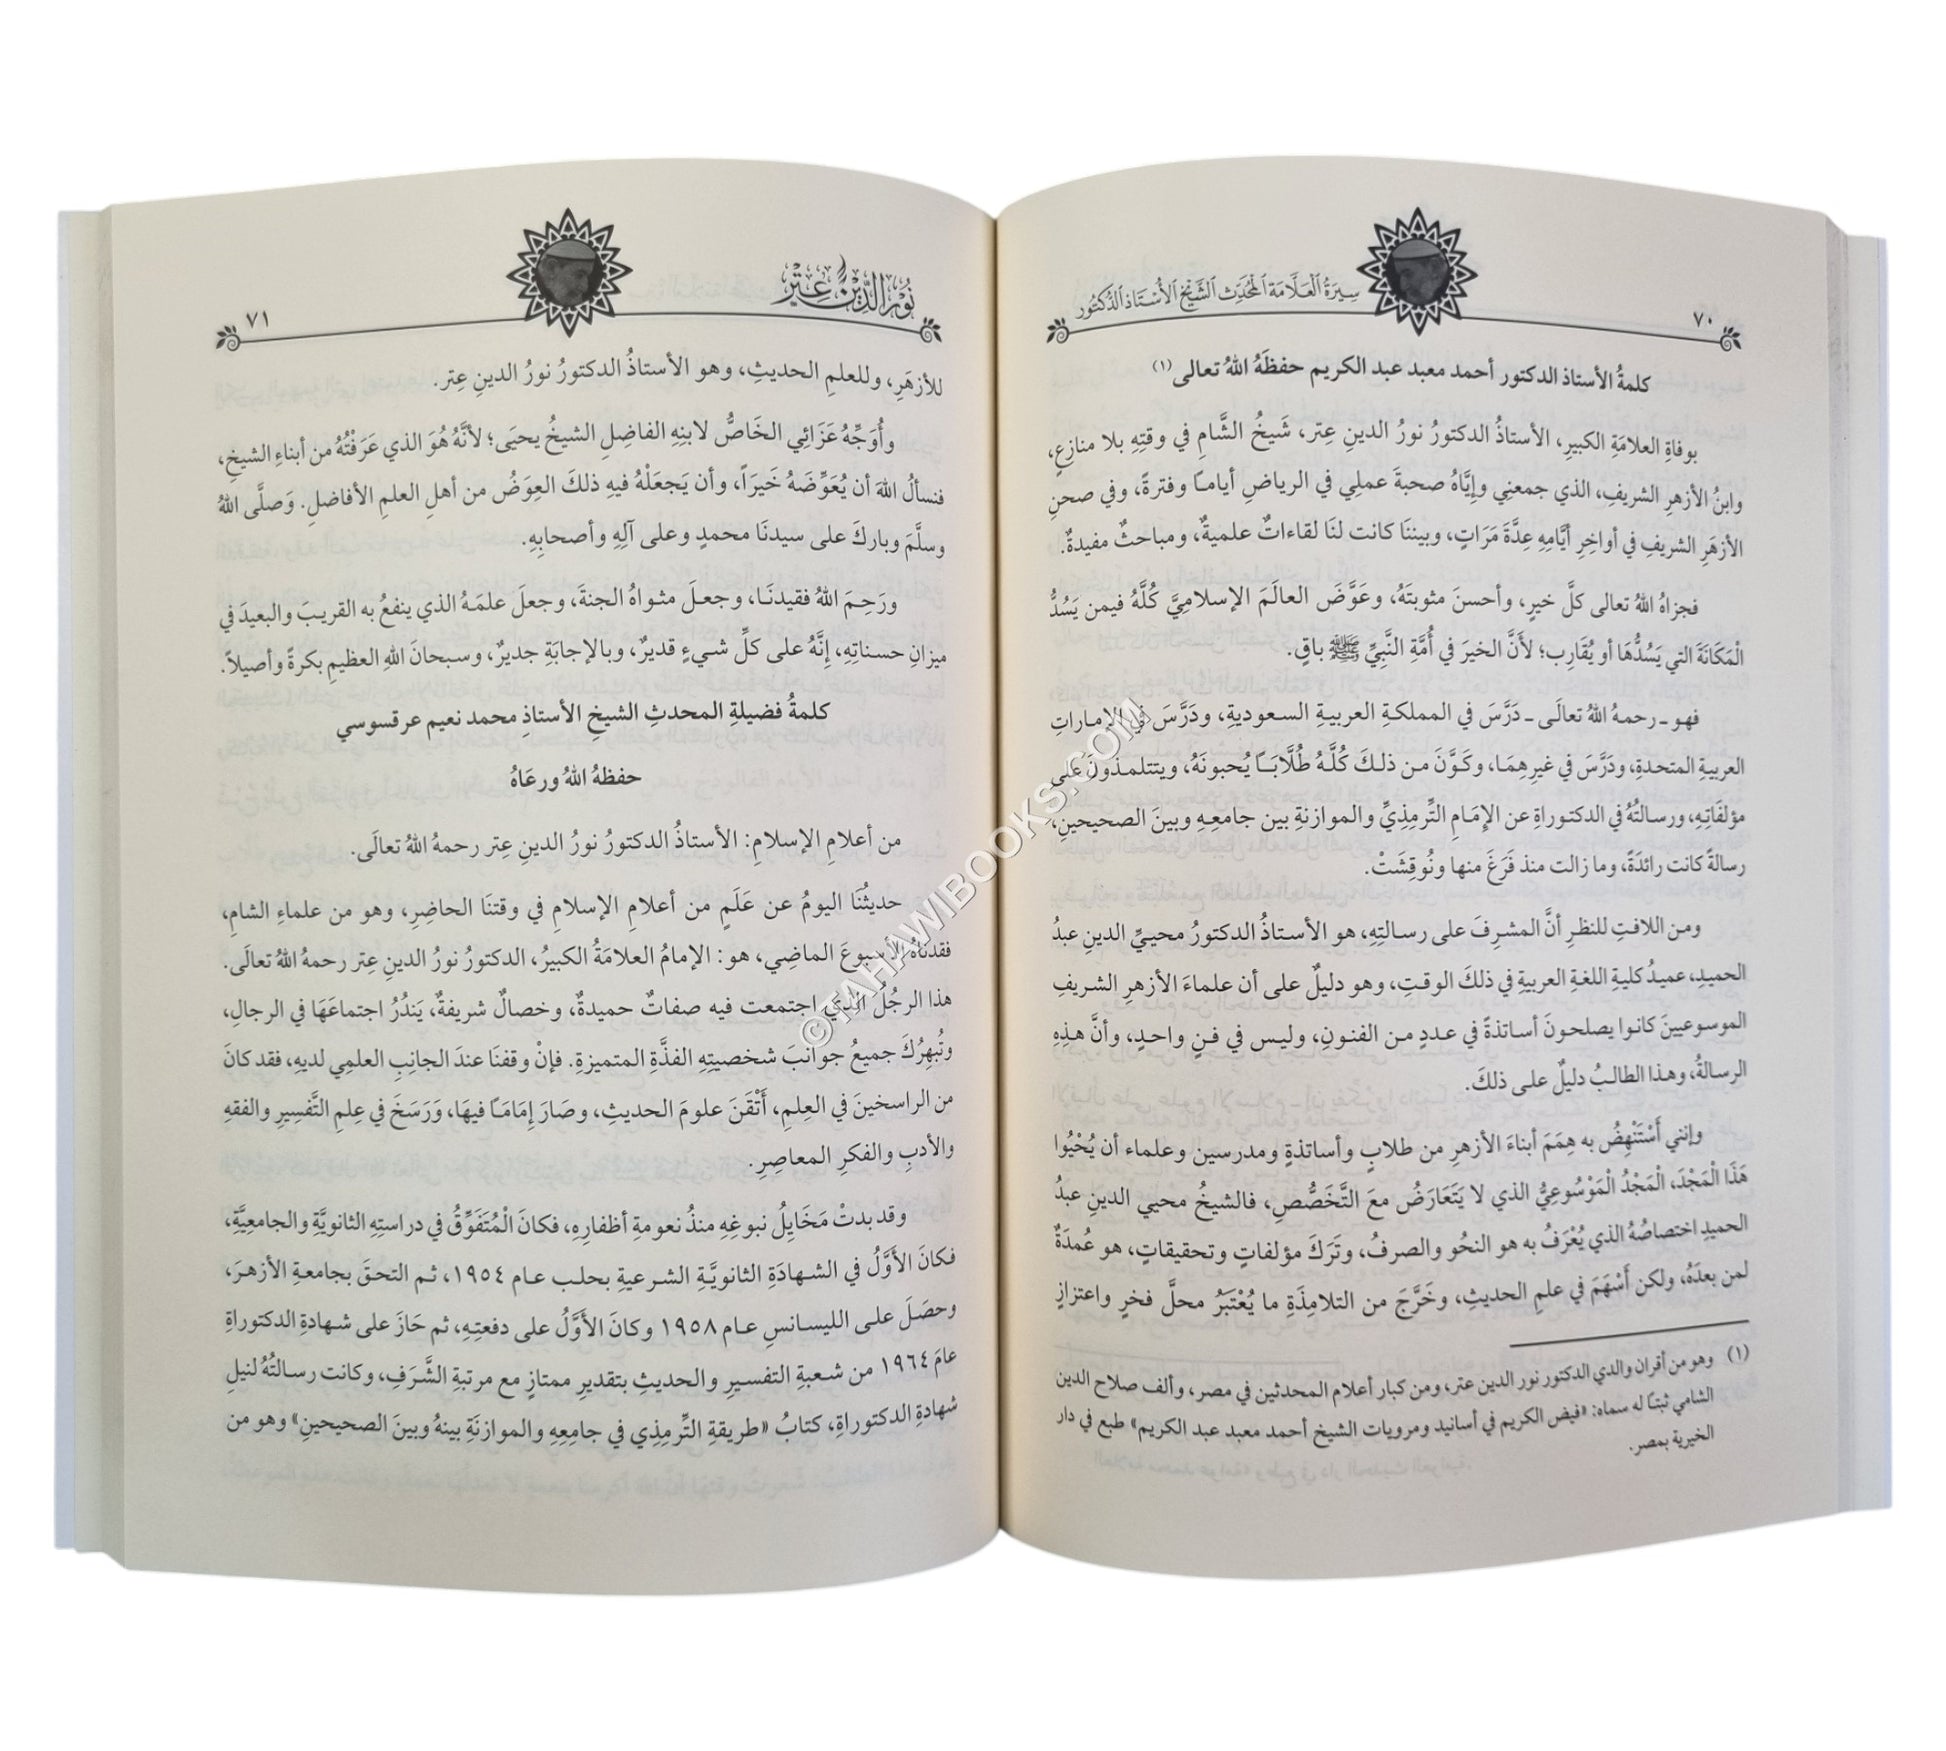 ٧٠
سِيرَةُ الْعَلَّامَةِ الْمُحَدِّثِ الشَّيْخِ الْأُسْتَاذِ الدُّكْتُورِ
كلمةُ الأستاذ الدكتور أحمد معبد عبد الكريم حفظَهُ اللهُ تعالى (١)
بوفاةِ العلامَةِ الكبيرِ، الأستاذُ الدكتورُ نورُ الدينِ عِتر، شَيخُ الشَّامِ في وقتِهِ بلا منازِعٍ،
وابنُ الأزهرِ الشريفِ، الذي جمعنِي وإيَّاهُ صحبةَ عملِي في الرياضِ أيامًا وفترةً، وفي صحنِ
الأزهَرِ الشريفِ في أواخِرِ أيَّامِهِ عِدَّةَ مَرَاتٍ، وبيننَا كانت لنَا لقاءَاتٌ علميةٌ، ومباحثٌ مفيدةٌ.
فجزاهُ اللهُ تعالى كلَّ خيرٍ، وأحسنَ مثوبتَهُ، وعَوَّضَ العالَمَ الإسلاميَّ كُلَّهُ فيمن يَسُدُّ
الْمَكَانَةَ التي يَسُدُّهَا أو يُقَارِب؛ لأَنَّ الخيرَ في أُمَّةِ النَّبِيِّ ﷺ باقٍ.
فهو ـ رحمهُ اللهُ تعالَى ـ دَرَّسَ في المملكةِ العربيةِ السعوديةِ، ودَرَّسَ في الإماراتِ
العربيةِ المتحدةِ، ودَرَّسَ في غيرِهِمَا، وكَوَّنَ من ذلكَ كُلَّهُ طُلَّابًا يُحبونَهُ، ويتتلمذونَ على
مؤلفَاتِهِ، ورسالتُهُ في الدكتوراةِ عن الإِمَامِ التِّرمِذِيِّ والموازنةِ بين جامعِهِ وبينَ الصحيحينِ،
رسالةً كانت رائدَةً، وما زالت منذ فَرَغَ منها ونُوقِشَتْ.
ومن اللافتِ للنظرِ أنَّ المشرِفَ على رسالتِهِ، هو الأستاذُ الدكتورُ محييِّ الدينِ عبدُ
الحميدِ، عميدُ كليةِ اللغةِ العربيةِ في ذلكَ الوقتِ، وهو دليلٌ على أن علماءَ الأزهرِ الشريفِ
الموسوعيينَ كانوا يصلحونَ أساتذةً في عددٍ من الفنونِ، وليس في فنٍ واحدٍ، وأنَّ هذِهِ
الرسالةُ، وهذا الطالبُ دليلٌ على ذلكَ.
وإنني أَسْتَنْهِضُ به هِمَمَ أبناءَ الأزهرِ من طلابٍ وأساتذةٍ ومدرسين وعلماء أن يُحْيُوا
هَذَا الْمَجْدَ، الْمَجْدُ الْمَوْسُوعِيُّ الذي لا يَتَعَارَضُ معَ التَّخَصُّصِ، فالشيخُ محيي الدينِ عبدُ
الحميدِ اختصاصُهُ الذي يُعْرَفُ به هو النحُو والصرفُ، وتَرَكَ مؤلفاتٍ وتحقيقاتٍ، هو عُمدَةٌ
لمن بعدَهُ، ولكن أَسْهَمَ في علمِ الحديثِ، وخَرَّجَ من التلامِذَةِ ما يُعْتَبَرُ محلَّ فخرٍ واعتزازٍ
(١) وهو من أقران والدي الدكتور نور الدين عتر، ومن كبار أعلام المحدثين في مصر، وألف صلاح الدين
الشامي ثبتًا له سماه: «فيض الكريم في أسانيد ومرويات الشيخ أحمد معبد عبد الكريم» طبع في دار
الخيرية بمصر.
نُورُ الدِّينِ عِتِر
٧١
للأزهَرِ، وللعلمِ الحديثِ، وهو الأستاذُ الدكتورُ نورُ الدينِ عِتر.
وأُوَجِّهُ عَزَائِي الخَاصُّ لابنِهِ الفاضِلِ الشيخُ يحيَى؛ لأنَّهُ هُوَ الذي عَرَفْتُهُ من أبناءِ الشيخِ،
فنسألُ اللهَ أن يُعَوِّضَهُ خَيرَاً، وأن يَجعَلَهُ فيهِ ذلكَ العِوَضُ من أهلِ العلمِ الأفاضلِ. وَصلَّى اللهُ
وسلَّمَ وباركَ على سيدنَا محمدٍ وعلى آلِهِ وأصحابِهِ.
ورَحِمَ اللهُ فقيدنَا، وجعلَ مثواهُ الجنةَ، وجعلَ علمَهُ الذي ينفعُ به القريبَ والبعيدَ في
ميزانِ حسناتِهِ، إنَّهُ على كلِّ شيءٍ قديرٌ، وبالإجابَةِ جديرٌ، وسبحانَ اللهِ العظيمِ بكرةً وأصيلاً.
كلمةُ فضيلةِ المحدثِ الشيخِ الأستاذِ محمد نعيم عرقسوسي
حفظهُ اللهُ ورعَاهُ
من أعلامِ الإسلامِ: الأستاذُ الدكتورُ نورُ الدينِ عِتر رحمهُ اللهُ تعالَى.
حديثُنَا اليومُ عن عَلَمٍ من أعلامِ الإسلامِ في وقتنَا الحاضِرِ، وهو من علماءِ الشامِ،
فقدنَاهُ الأسبوعَ الماضِي، هو: الإمامُ العلامَةُ الكبيرُ، الدكتورُ نورُ الدينِ عِتر رحمهُ اللهُ تعالَى.
هذا الرجلُ الذي اجتمعت فيه صفاتٌ حميدةٌ، وخصالٌ شريفةٌ، يَندُرُ اجتماعَهَا في الرجالِ،
وتُبهِرُكَ جميعُ جوانبَ شخصيتِهِ الفذَّةِ المتميزةِ. فإنْ وقفنَا عندَ الجانِبِ العلمِي لديهِ، فقد كانَ
من الراسخينَ في العِلمِ، أَتْقَنَ علومَ الحديثِ، وصَارَ إِمَامَاً فيهَا، وَرَسَخَ في عِلمِ التَّفسِيرِ والفقهِ
والأدبِ والفكرِ المعاصِرِ.
وقد بدتْ مَخَايِلُ نبوغِهِ منذُ نعومةِ أظفارِهِ، فكانَ الْمُتَفَوِّقُ في دراستِهِ الثانويَّةِ والجامعيَّةِ،
فكانَ الأَوَّلُ في الشهادَةِ الثانويَّةِ الشرعيةِ بحلب عام ١٩٥٤، ثم التحقَ بجامعةِ الأزهرَ،
وحصَلَ على الليسانسِ عام ١٩٥٨ وكانَ الأَوَّلُ على دفعتِهِ، ثم حَازَ على شهادةِ الدكتوراةِ
عامَ ١٩٦٤ من شعبةِ التفسيرِ والحديثِ بتقديرِ ممتازٍ مع مرتبةِ الشَّرَفِ، وكانت رسالتُهُ لنيلِ
شهادةِ الدكتوراةِ، كتابُ «طريقةِ التِّرمِذِي في جامِعِهِ والموازنَةِ بينهُ وبينَ الصحيحينِ» وهو من
©TAHAWIBOOKS.COM